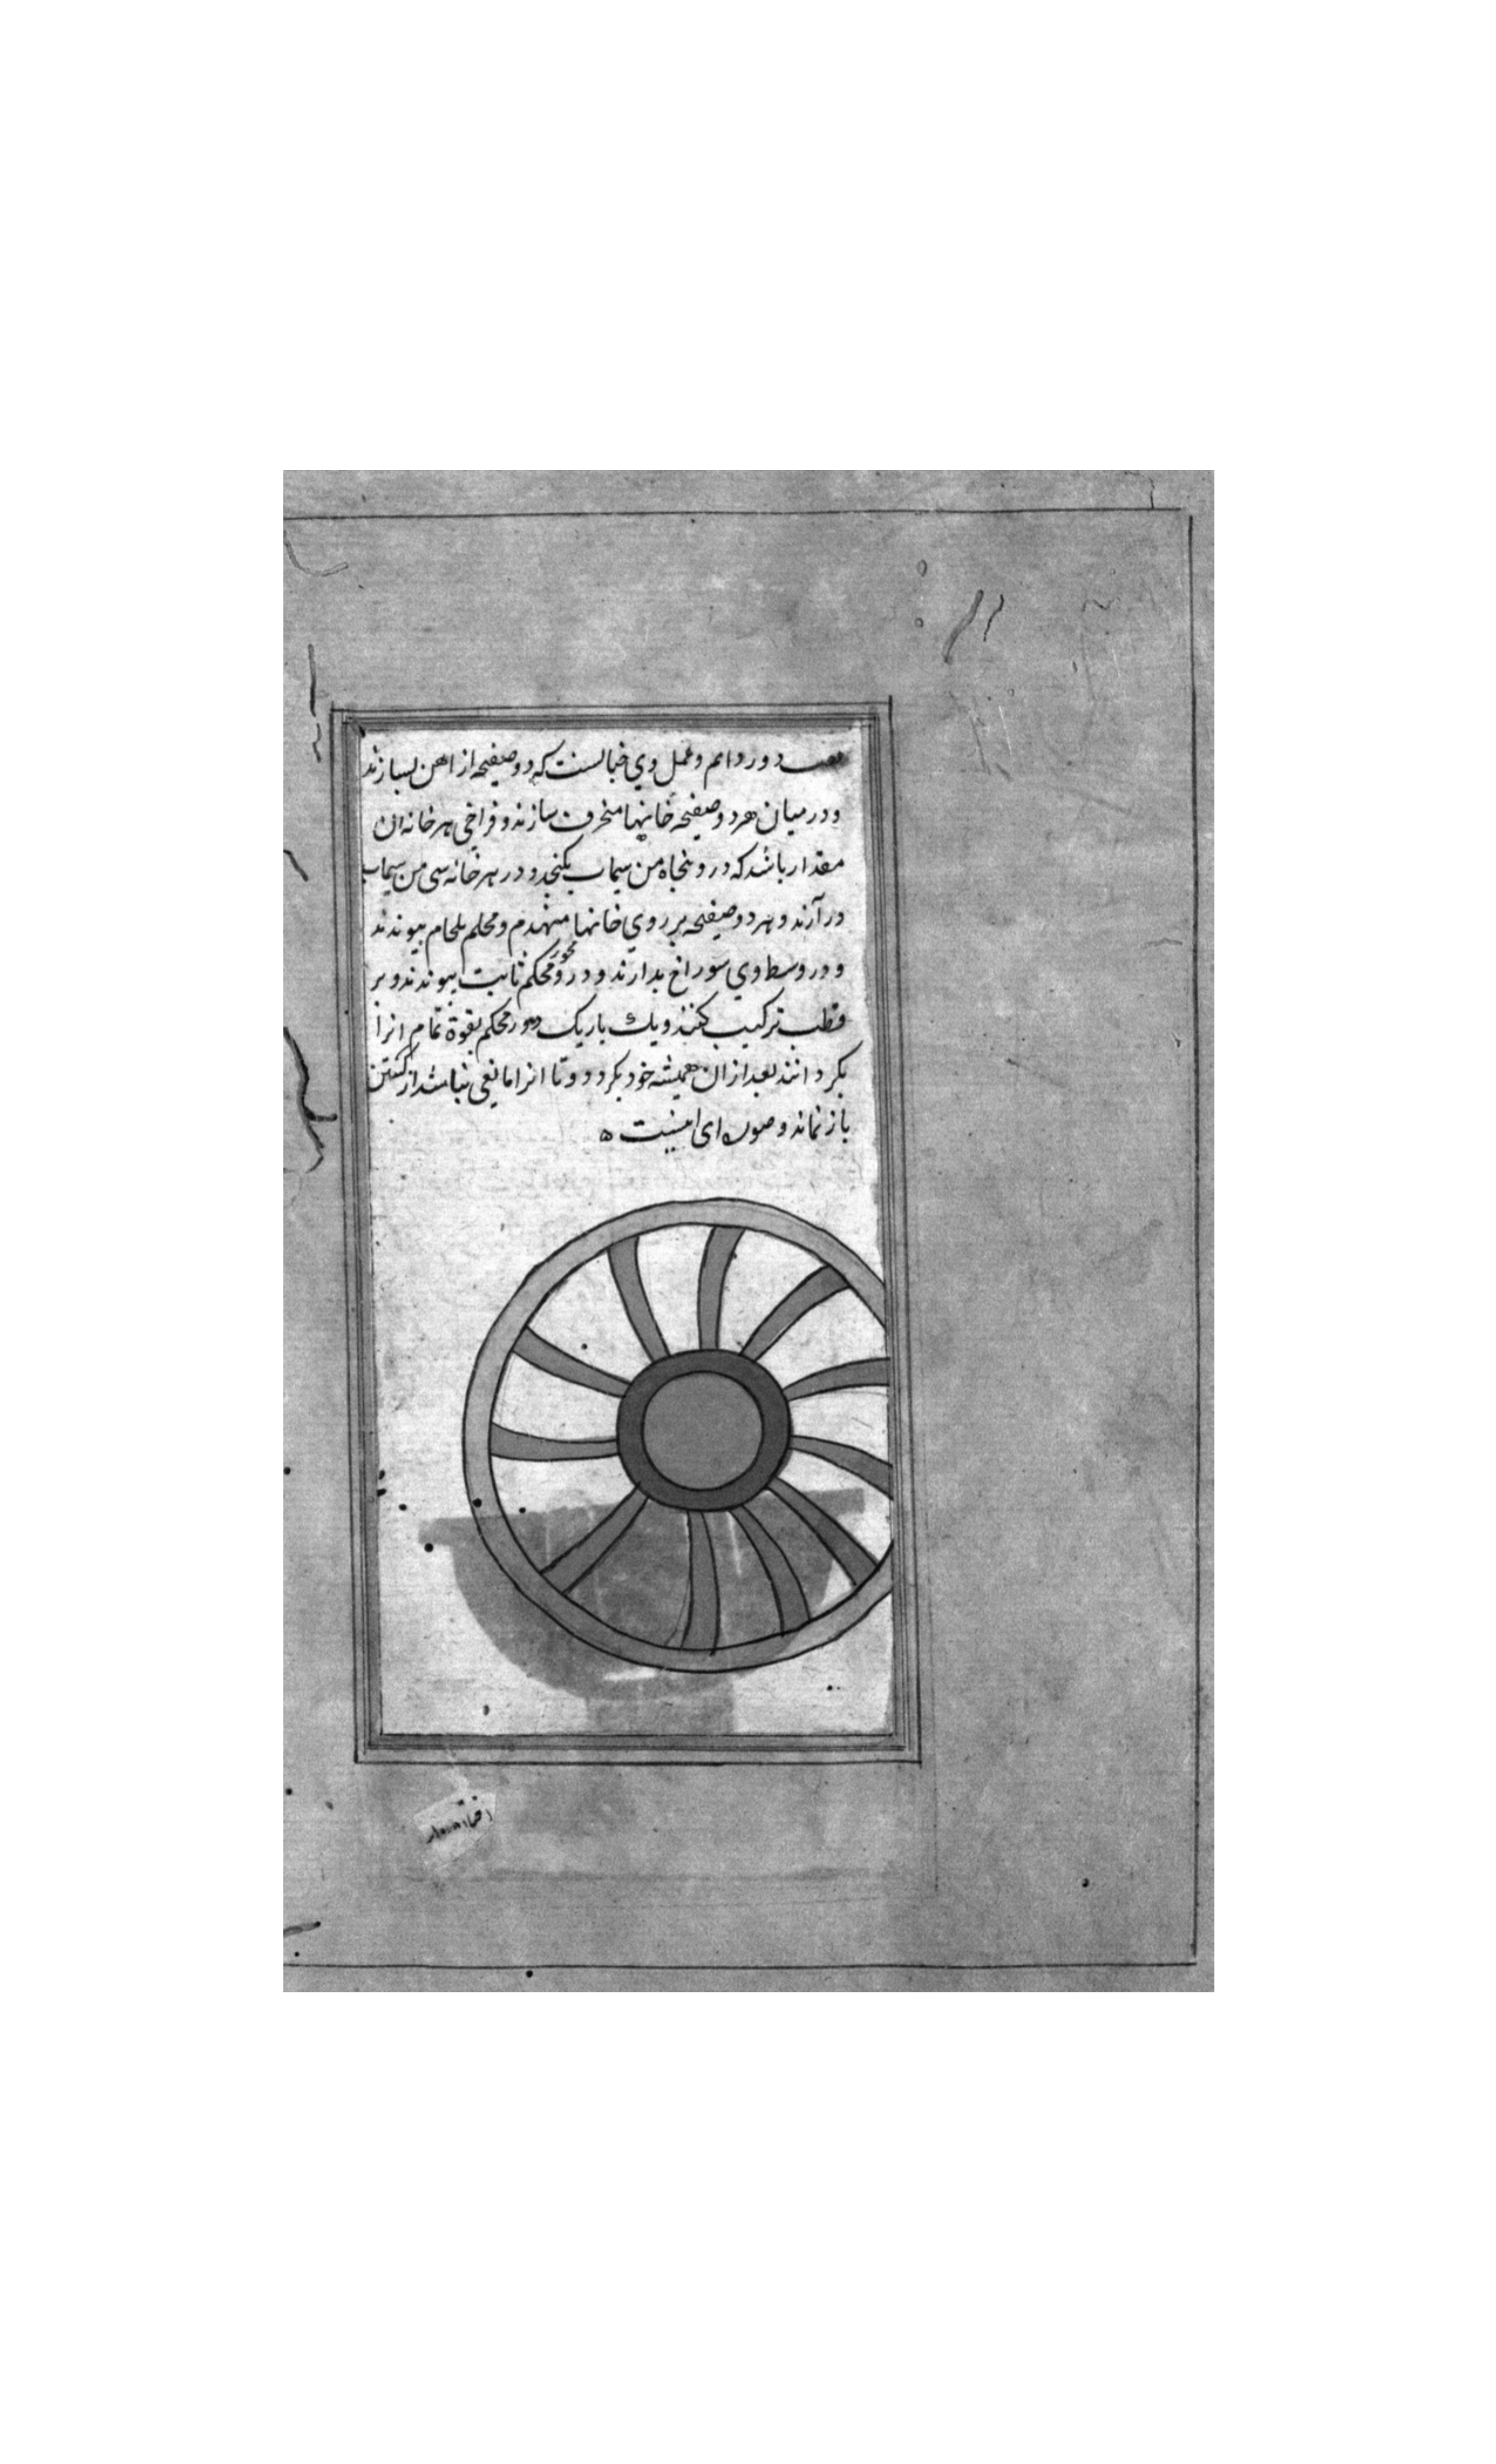 دور دائم و عمل وي خيالست كه دو صفيحه از اهن بسازند
و در ميان هر دو صفيحه خانها منحرف سازند و فراخي هر خانه ان
مقدار باشد كه درو پنجاه من سيماب بكنجد و در هر خانه سي من سيماب
در آرند و هر دو صفيحه بر روي خانها منهدم و محكم بلحام پيوندند
و در وسط وي سوراخ بدارند و درو محور محكم ثابت پيوندند و بر
قطب تركيب كنند و يك باريك دور محكم بقوة تمام انرا
بكردانند بعد از ان هميشه خود بكردد و تا انرا مانعي نباشد از كشتن
باز نماند و صورت اي اينست ه